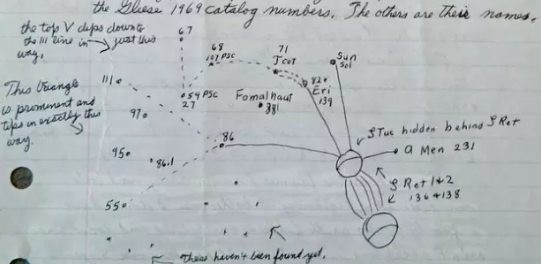 the Gliese 1969 catalog numbers. The others are their names.
the top V dips down to
the 111 line in just this
way.
67
68
107 PSC
71
T Cet
82
Eri
139
Sun
Sol
54 PSC
27
Fomalhaut
881
111
This triangle
is prominent and
tips in exactly this
way.
97
86
95
86.1
55
ζ Tuc hidden behind ζ Ret
α Men 231
ζ Ret 1&2
136 & 138
These haven't been found yet.